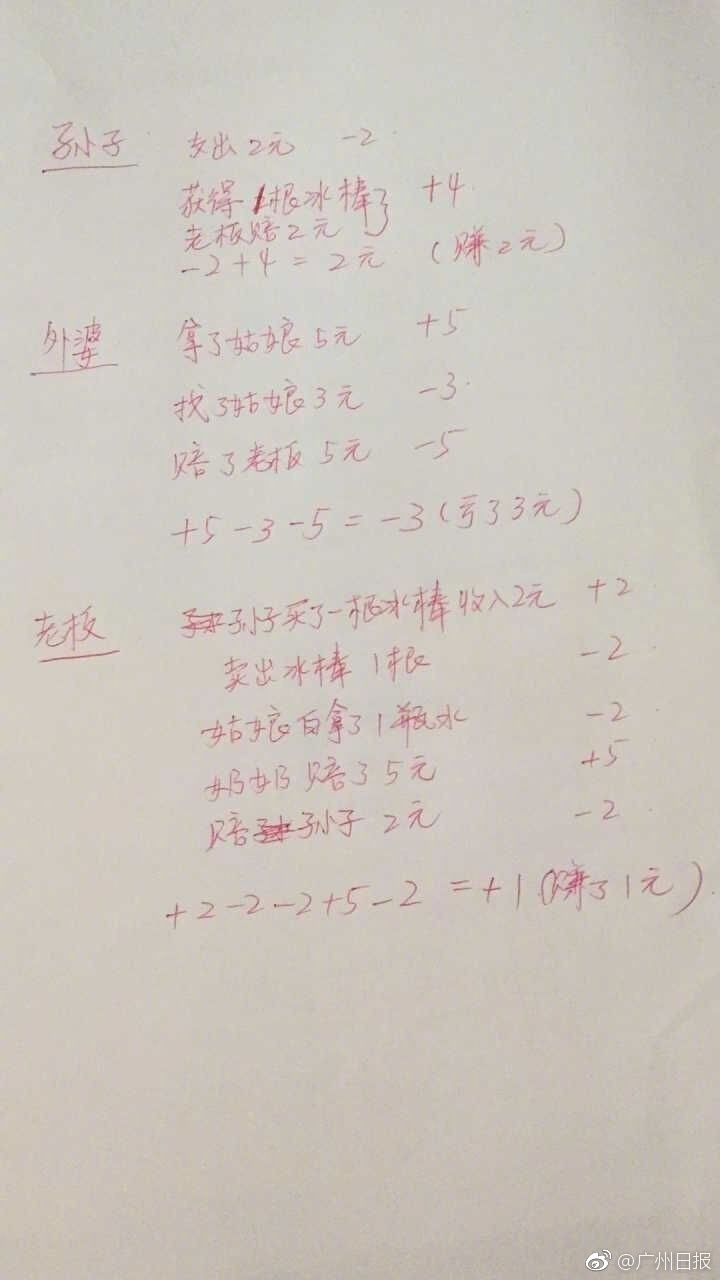 孙子 支出2元 -2
获得1根冰棒 } +4
老板赔2元
-2+4=2元 (赚2元)
外婆 拿了姑娘5元 +5
找了姑娘3元 -3
赔了老板5元 -5
+5-3-5=-3(亏了3元)
老板 孙子买了一根冰棒收入2元 +2
卖出冰棒1根 -2
姑娘白拿了1瓶水 -2
奶奶赔了5元 +5
赔孙子2元 -2
+2-2-2+5-2=+1(赚了1元)
@广州日报